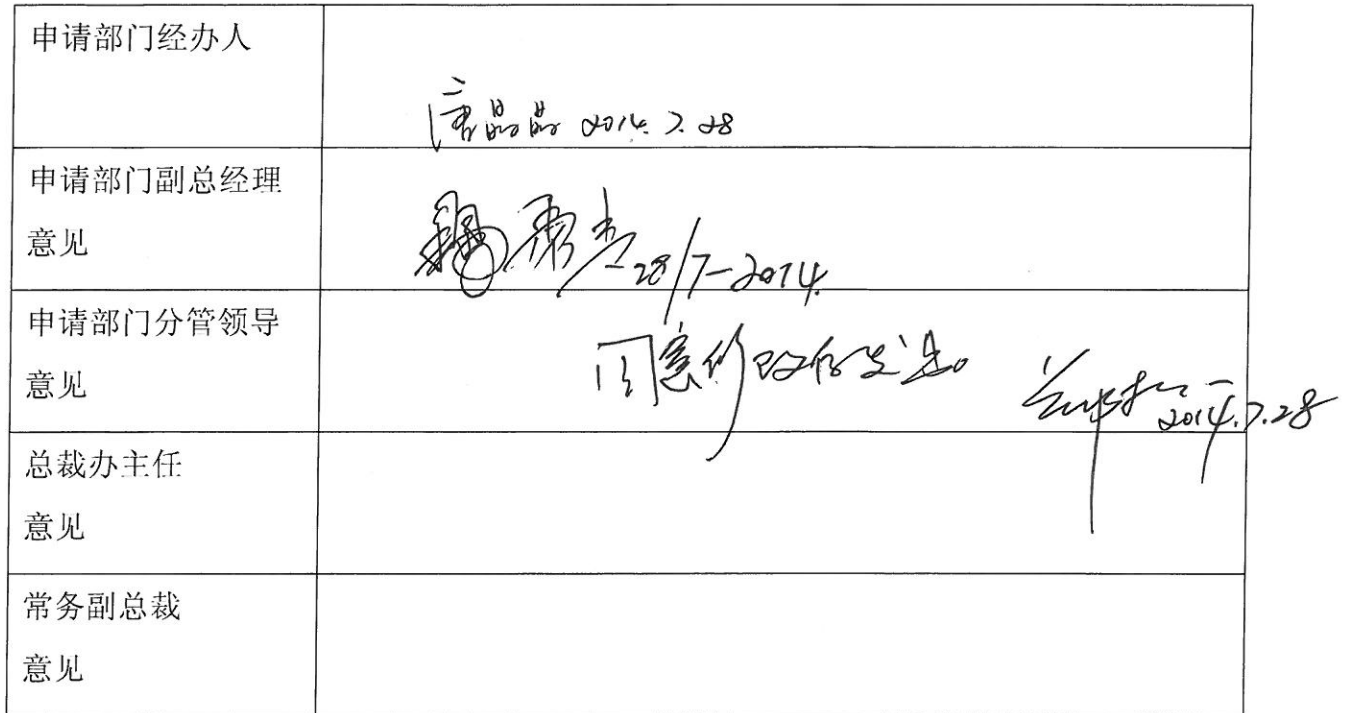 申请部门经办人
唐晶晶 2014.7.28
申请部门副总经理
意见
28/7-2014.
申请部门分管领导
意见
同意修改后发送。
2014.7.28
总裁办主任
意见
常务副总裁
意见